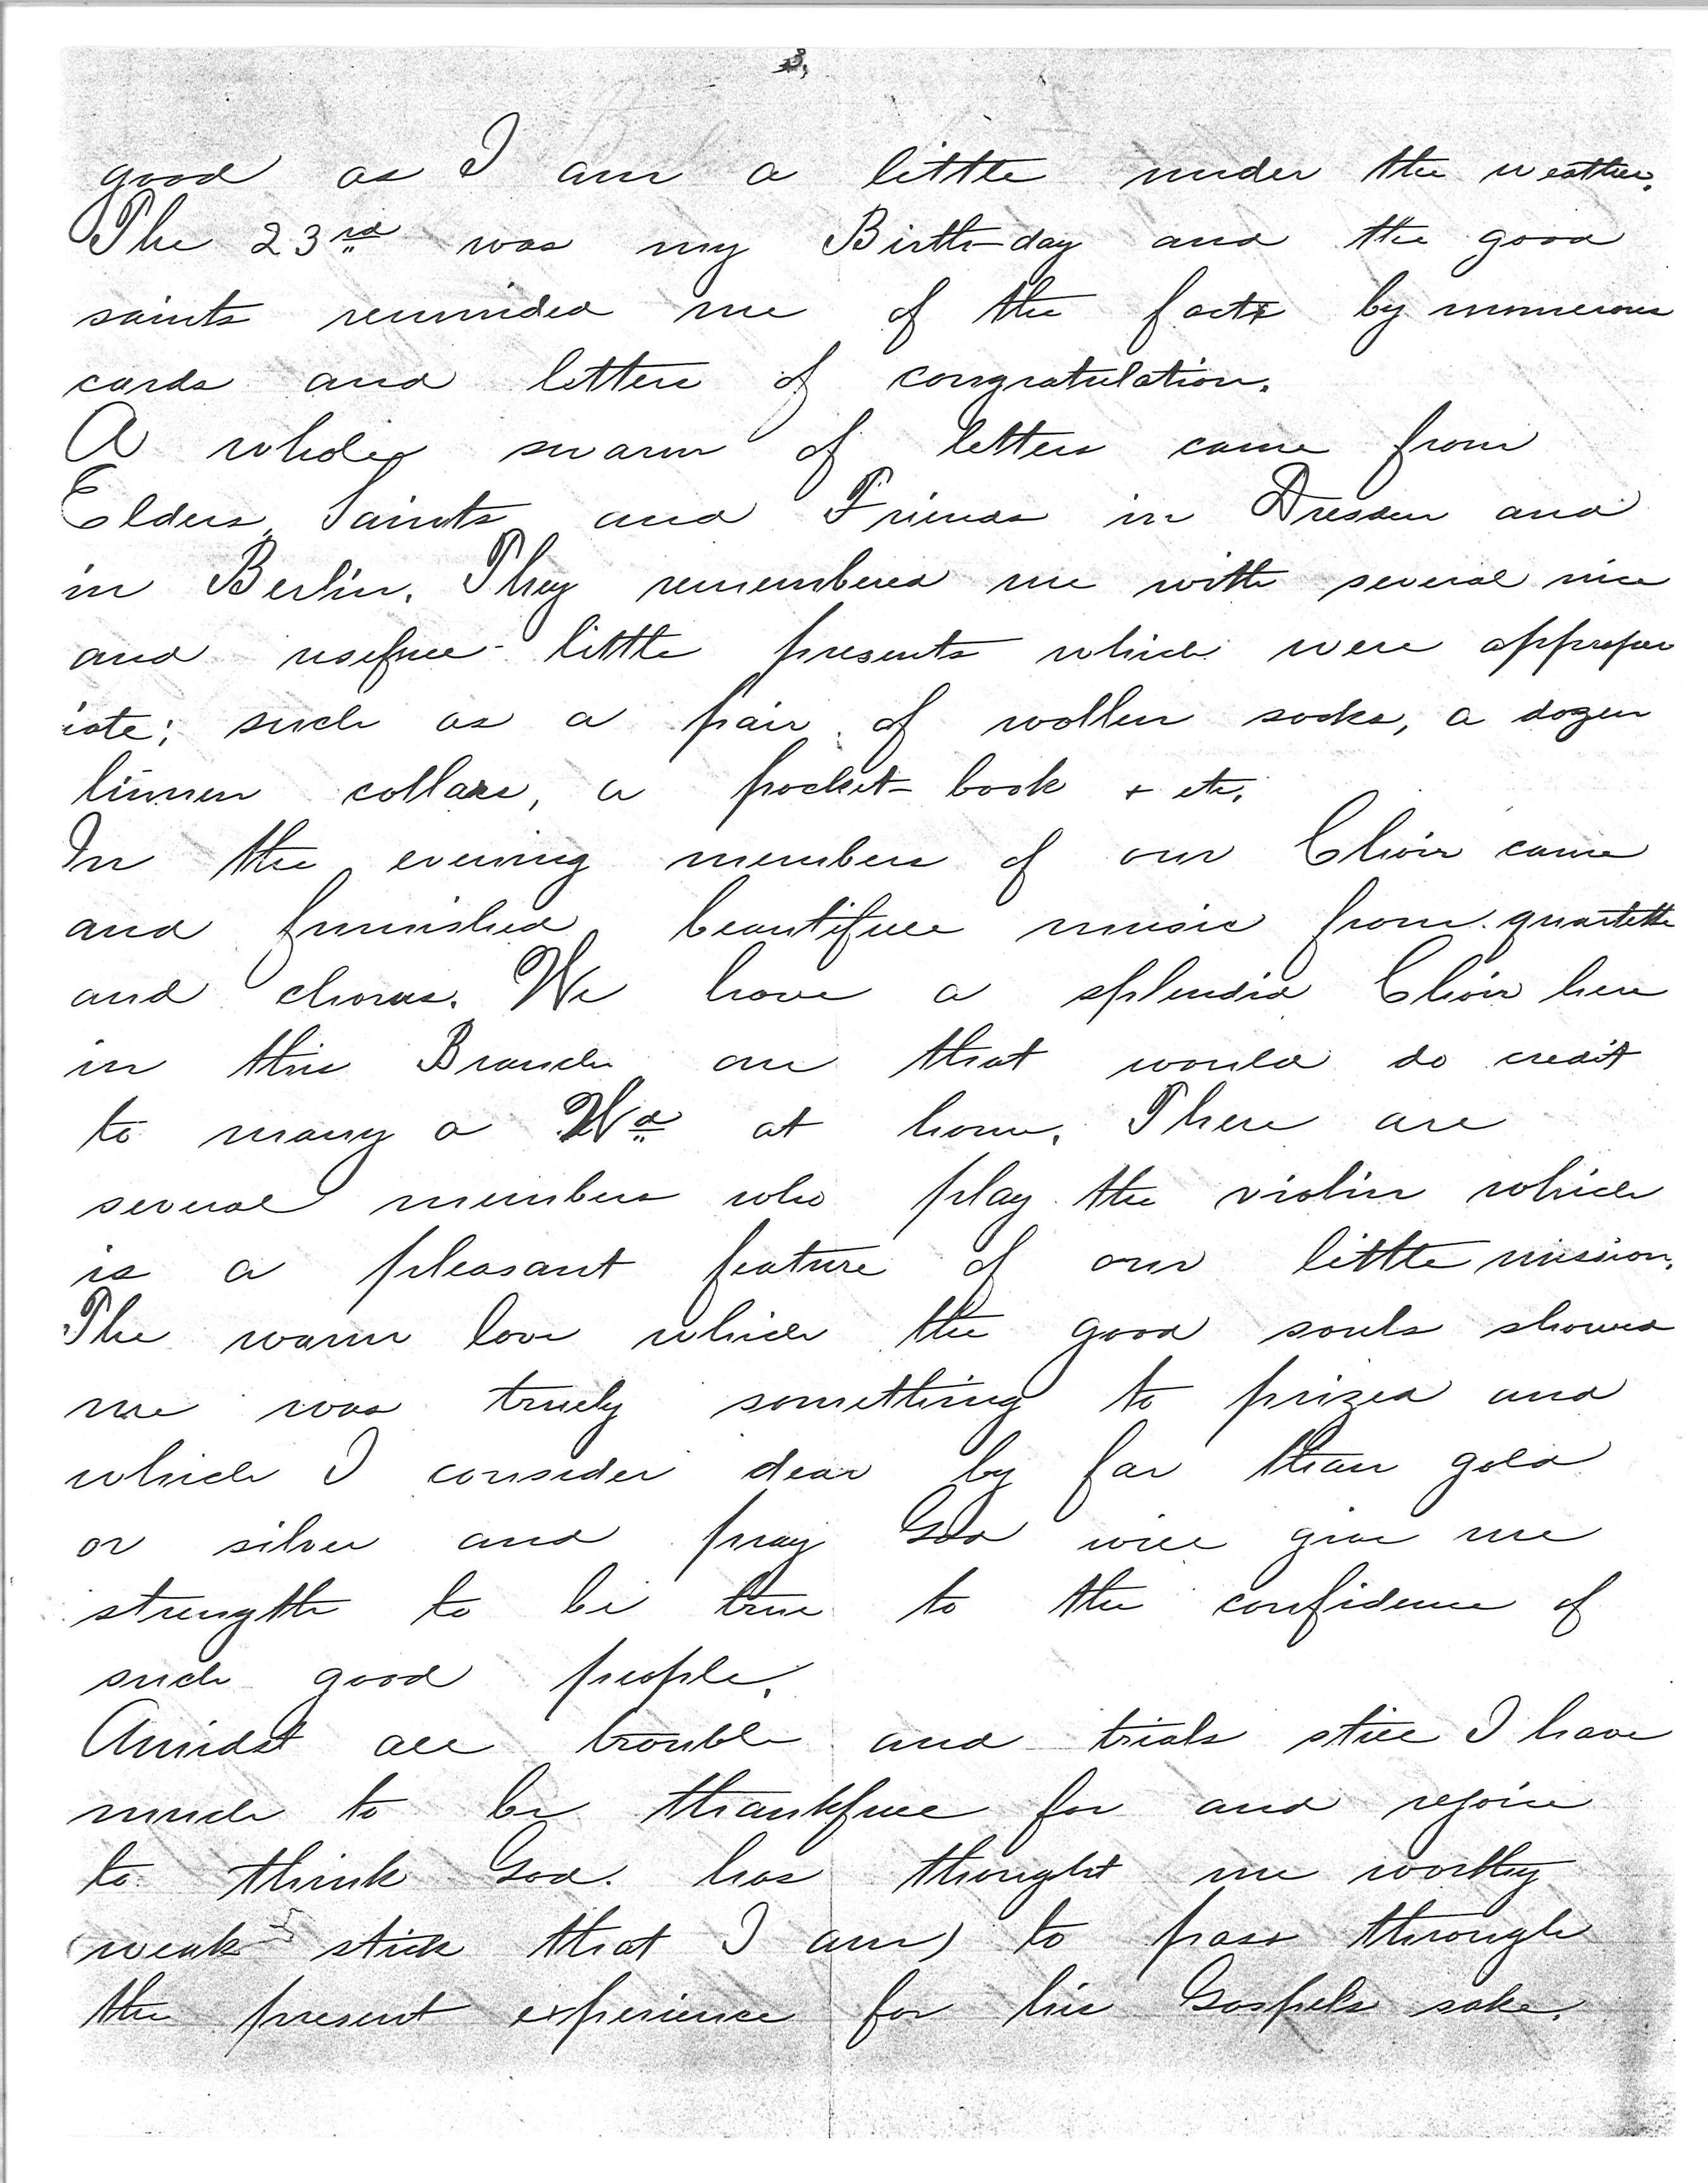 3,
good as I am a little under the weather.
The 23rd was my Birth-day and the good
saints reminded me of the facts by numerous
cards and letters of congratulation.
A whole swarm of letters came from
Elders, Saints and Friends in Dresden and
in Berlin. They remembered me with several nice
and usefull little presents which were appropr
iate; such as a pair of wollen socks, a dozen
linnen collars, a pocket-book + etc.
In the evening members of our Choir came
and furnished beautifull music from quartette
and chorus. We have a splendid Choir here
in this Branch on that would do credit
to many a Wd at home. There are
several members who play the violin which
is a pleasant feature of our little mission.
The warm love which the good souls showed
me was truely something to prized and
which I consider dear by far than gold
or silver and pray God will give me
strength to be true to the confidence of
such good people.
Amidst all trouble and trials still I have
much to be thankfull for and rejoice
to think God has thought me worthy
(weak stick that I am) to pass through
the present experience for his Gospels sake.